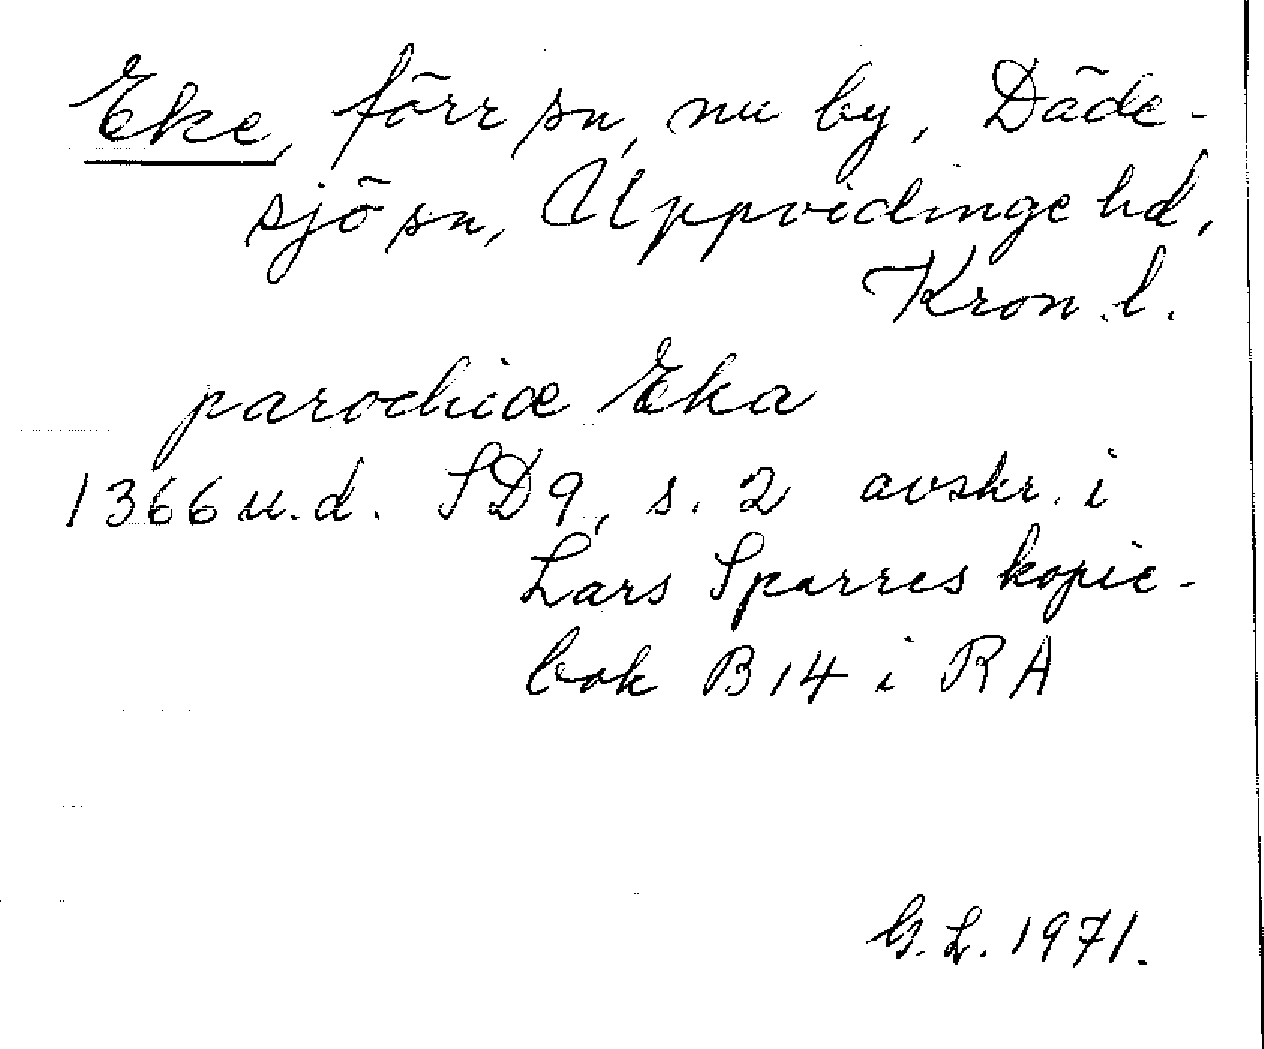 Eke, förr sn, nu by, Däde-
sjö sn, Uppvidinge hd,
Kron. l.
parochiæ Eka
1366 u.d. SD9, s. 2 avskr. i
Lars Sparres kopie-
bok B14 i RA
G.L. 1971.